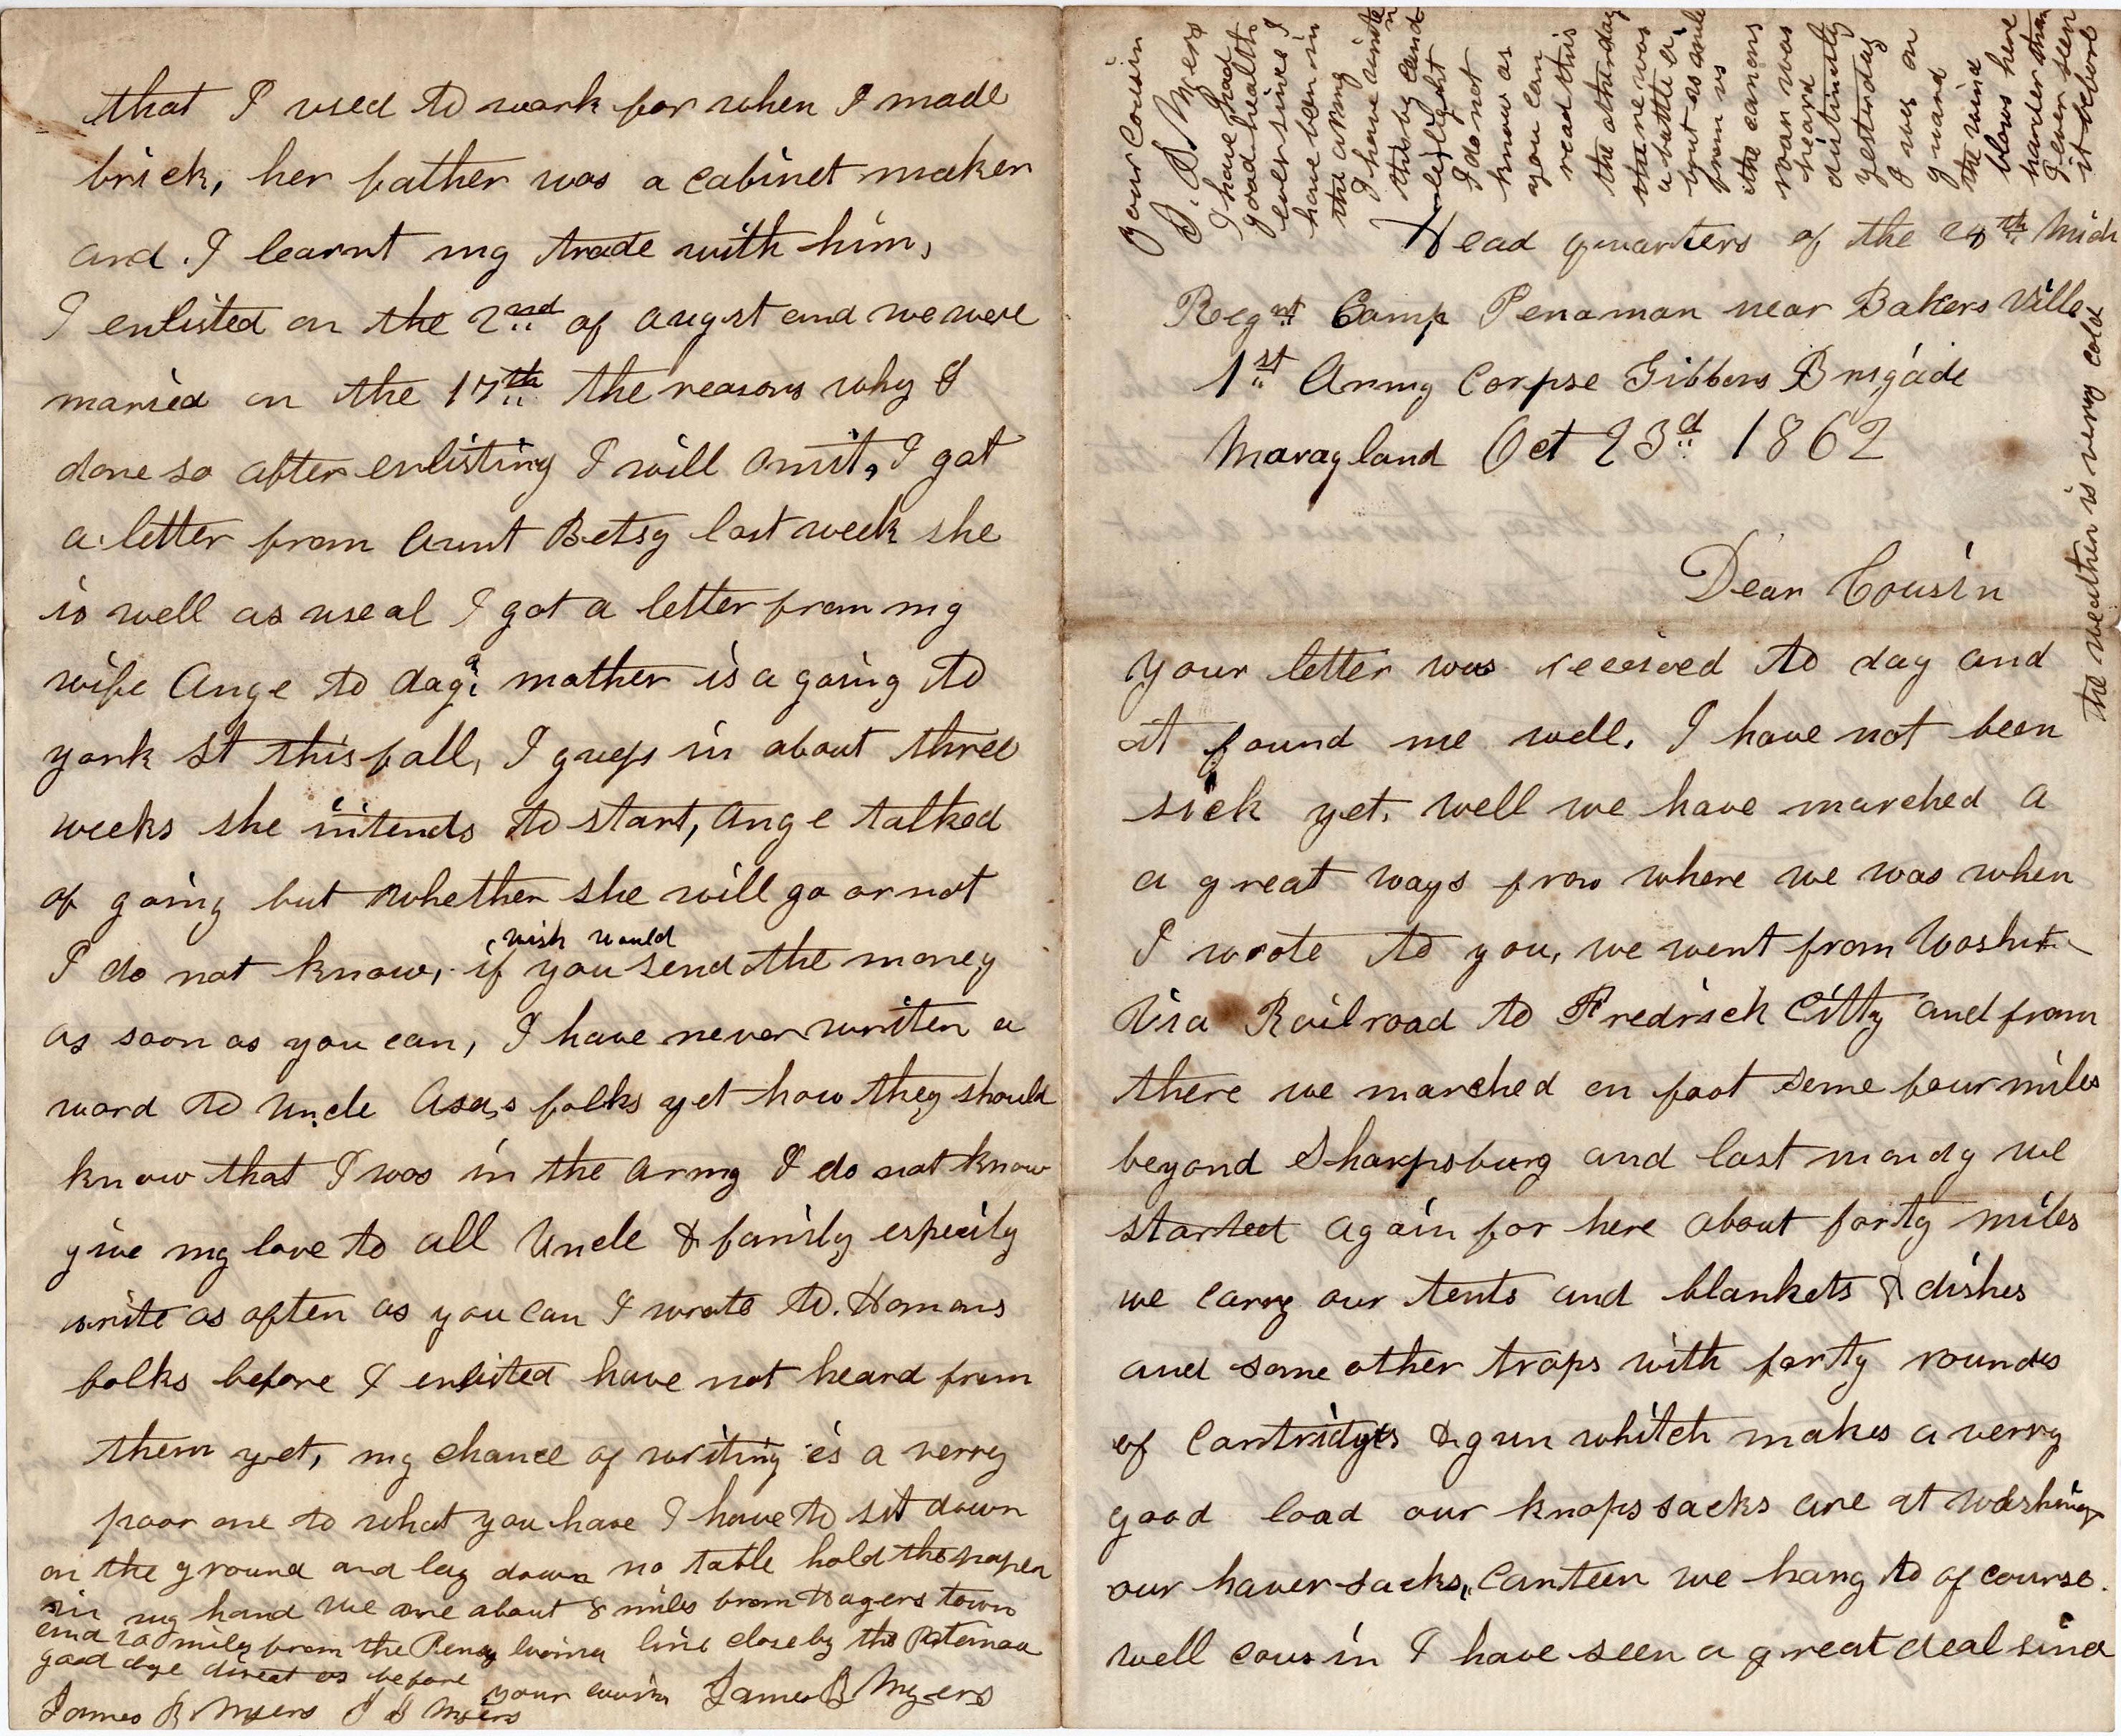 Head quarters of the 24th Mich
Regnt Camp Penaman near Bakers Ville
1st Army Corpse Gibbons Brigade
Maragland Oct 23d 1862
Dear Cousin
your letter was received to day and
it found me well. I have not been
sick yet. well we have marched a
a great ways from where we was when
I wrote to you, we went from Washit
Via Railroad to Fredrick Citty and from
there we marched on foot some four miles
beyond Sharpsburg and last mondy we
started again for here about forty miles
we carry our tents and blankets & dishes
and some other traps with forty rounds
of Cartridges & gun whitch makes a verry
good load our knaps sacks are at Washing
our haver sacks, Canteen we hang to of course.
well cousin I have seen a great deal sinc
the weather is verry cold
that I used to work for when I made
brick, her father was a cabinet maker
and I learnt my trade with him,
I enlisted on the 2nd of augst and we were
maried on the 17th the reasons why I
done so after enlisting I will omit, I got
a letter from Aunt Betsy last week she
is well as useal I got a letter from my
wife Ange to day, mother is a going to
york St this fall, I guess in about three
weeks she intends to start, Ange talked
of going but whether she will go or not
I do not know, if wish you would send the money
as soon as you can, I have never writen a
word to Uncle Asa,s folks yet how they should
know that I was in the army I do not know
give my love to all Uncle & family especily
write as often as you can I wrote to. Homans
folks before I enlisted have not heard from
them yet, my chance of writing is a verry
poor one to what you have I have to sit down
on the ground and lay down no table hold the paper
in my hand we are about 8 miles from Hagers town
and 20 miles from the line close by the
good bye direct as before
your cousin James B Myers
James B Myers J B Myers
Your Cousin
B. Myers
I have had
good health
ever since I
have been in
the army
I have
this by cand
lelight
I do not
know as
you can
read this
the other day
there was
a battle a
bout 20 mile
from us
the canons
roar was
heard
distinctly
yesterday
I was on
guard
the wind
blows here
harder than
I ever seen
it before